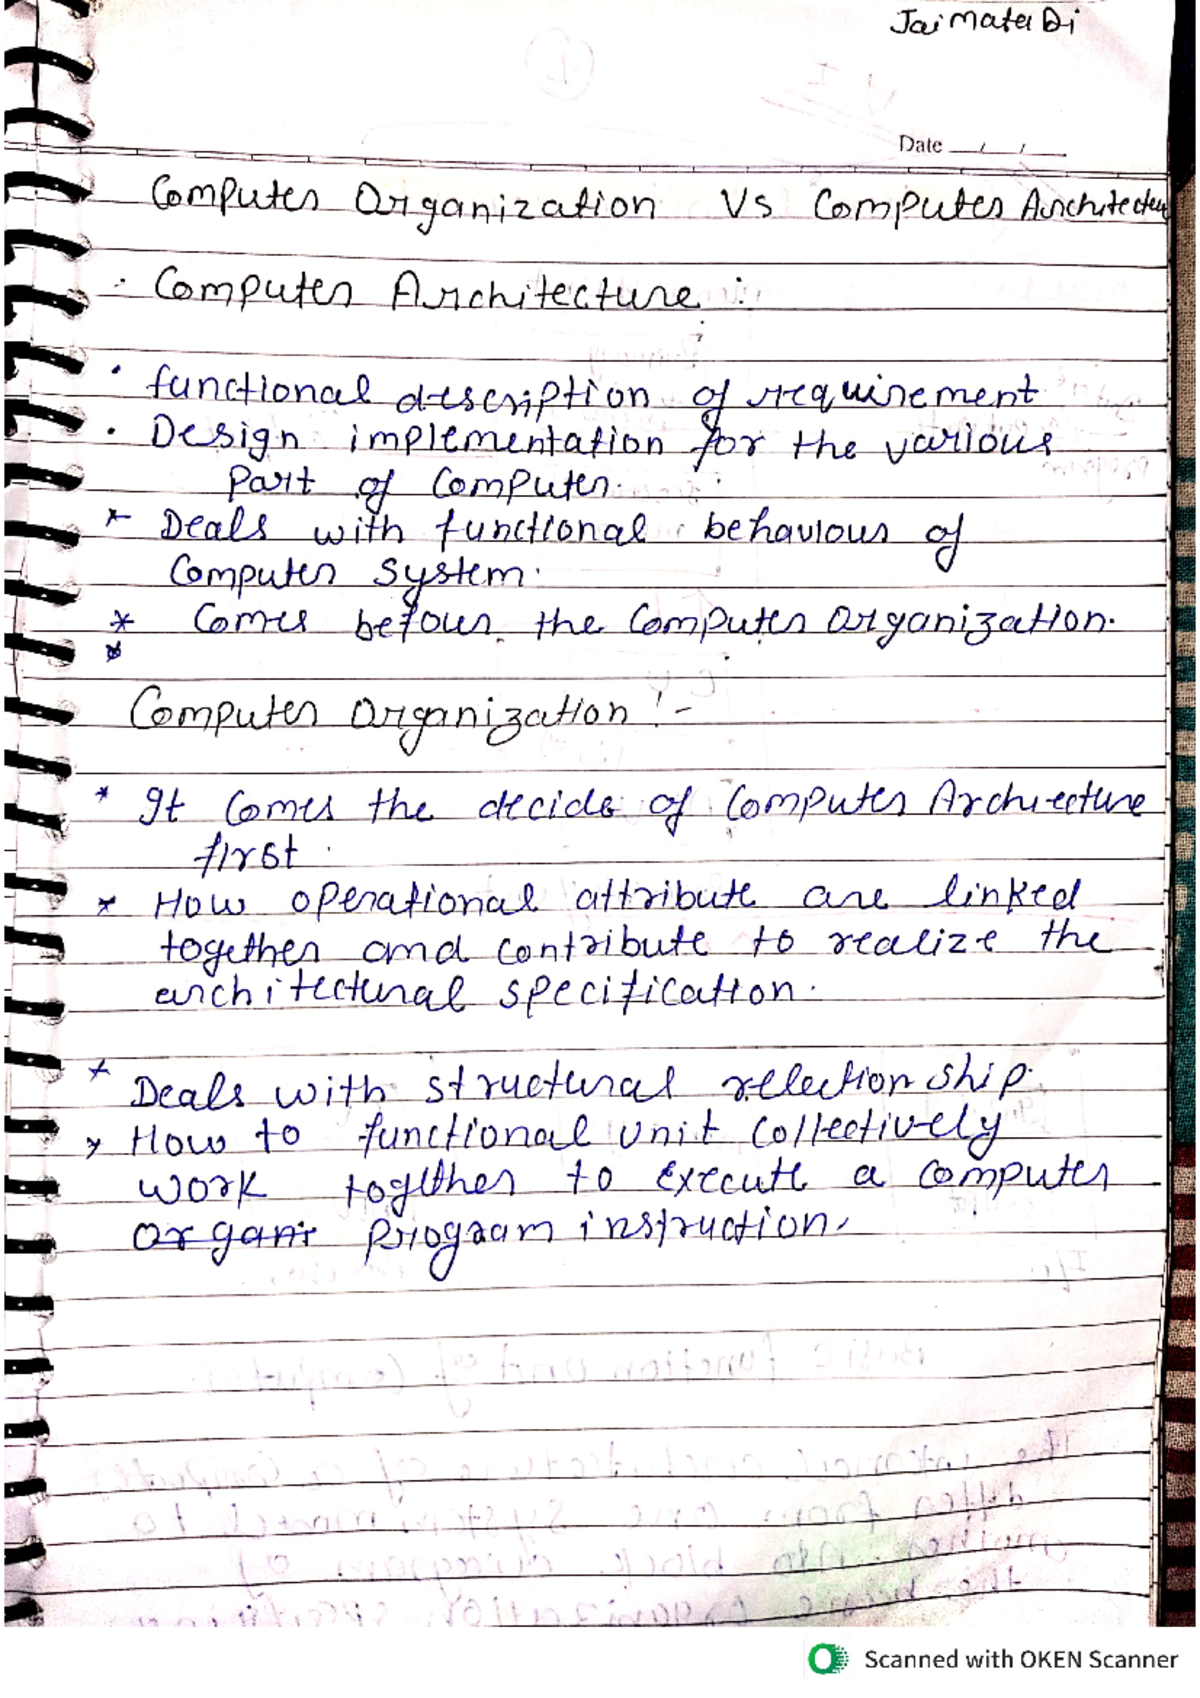 Jai Mata Di
Date __/__/__
Computer Organization Vs Computer Architectu
Computer Architecture :
• functional description of requirement
• Design implementation for the various
part of Computer.
* Deals with functional behaviour of
Computer System.
* Comes before the Computer Organization.
Computer Organization :-
* It Comes the decide of Computer Archiecture
first.
* How operational attribute are linked
together and contribute to realize the
architectural specification.
* Deals with structural relectionship.
* How to functional unit collectively
work together to execute a Computer
organi program instruction.
Scanned with OKEN Scanner